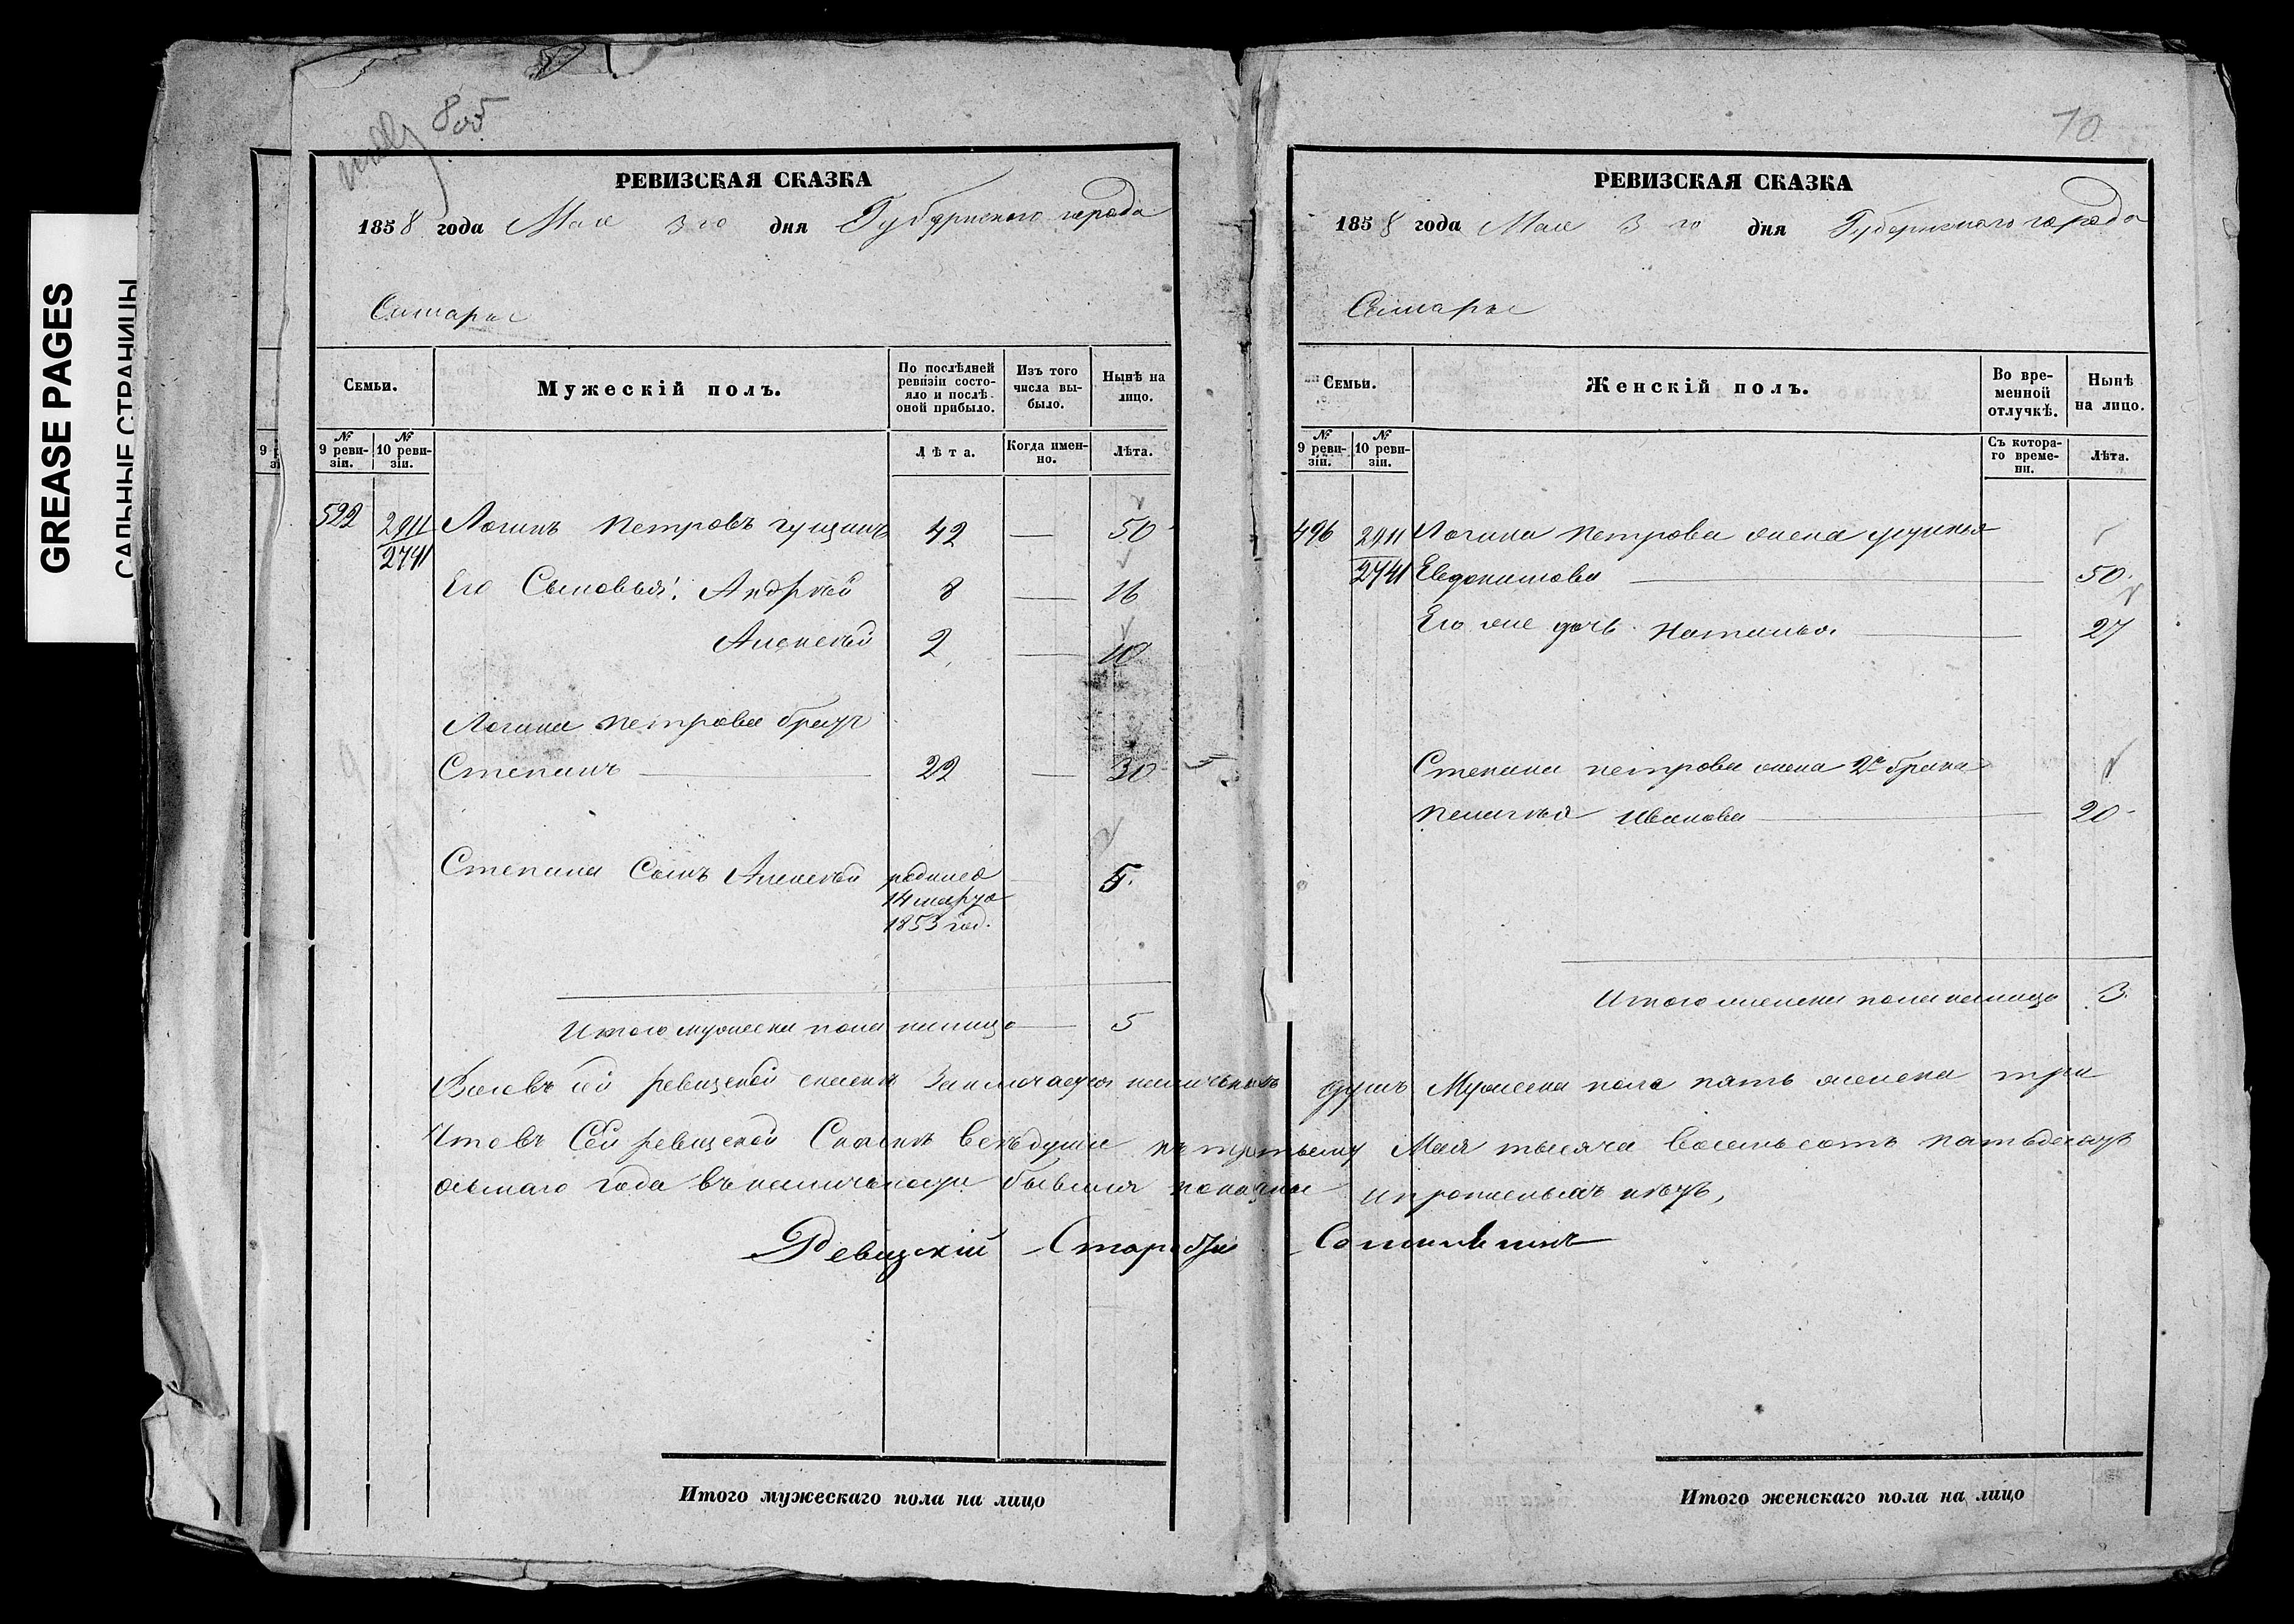 GREASE PAGES
САЛЬНЫЕ СТРАНИЦЫ
805
РЕВИЗСКАЯ СКАЗКА
1858 года Мая 3го дня Губернского города
Самары
Семьи.
Мужескій полъ.
По послѣдней ревизіи состояло и послѣ оной прибыло.
Изъ того числа выбыло.
Нынѣ на лицо.
№ 9 ревизіи.
№ 10 ревизіи.
Лѣта.
Когда именно.
Лѣта.
522 2911 Логинъ Петровъ Гущинъ 42 — 50
2741
Его Сыновья: Андрѣй 8 — 16
Алексѣй 2 — 10
Логина Петрова братъ
Степанъ — 22 — 30
Степана Сынъ Алексѣй родился 5
14 марта
1853 год.
Итого мужеска пола налицо — 5
РЕВИЗСКАЯ СКАЗКА
10
1858 года Мая 3го дня Губернскаго города
Самары
Семьи.
Женскій полъ.
Во временной отлучкѣ.
Нынѣ на лицо.
№ 9 ревизіи.
№ 10 ревизіи.
Съ котораго времени.
Лѣта.
496 2911 Логина Петрова жена
2741 Евдокимова — 50
Его же дочь Наталья — 27
Степана Петрова жена 2го брака
Пелагѣя Иванова — 20
Итого женска пола налицо 3
Всего въ сей ревизской сказкѣ Заключается наличныхъ душъ Мужеска пола пять женска три
Что въ Сей ревизской Сказкѣ всѣ души къ третьему Мая тысяча восемьсотъ пятьдесятъ
осьмаго года въ наличности бывшия показаны и прописныхъ нѣтъ,
Ревизскій Староста
Итого мужескаго пола на лицо
Итого женскаго пола на лицо